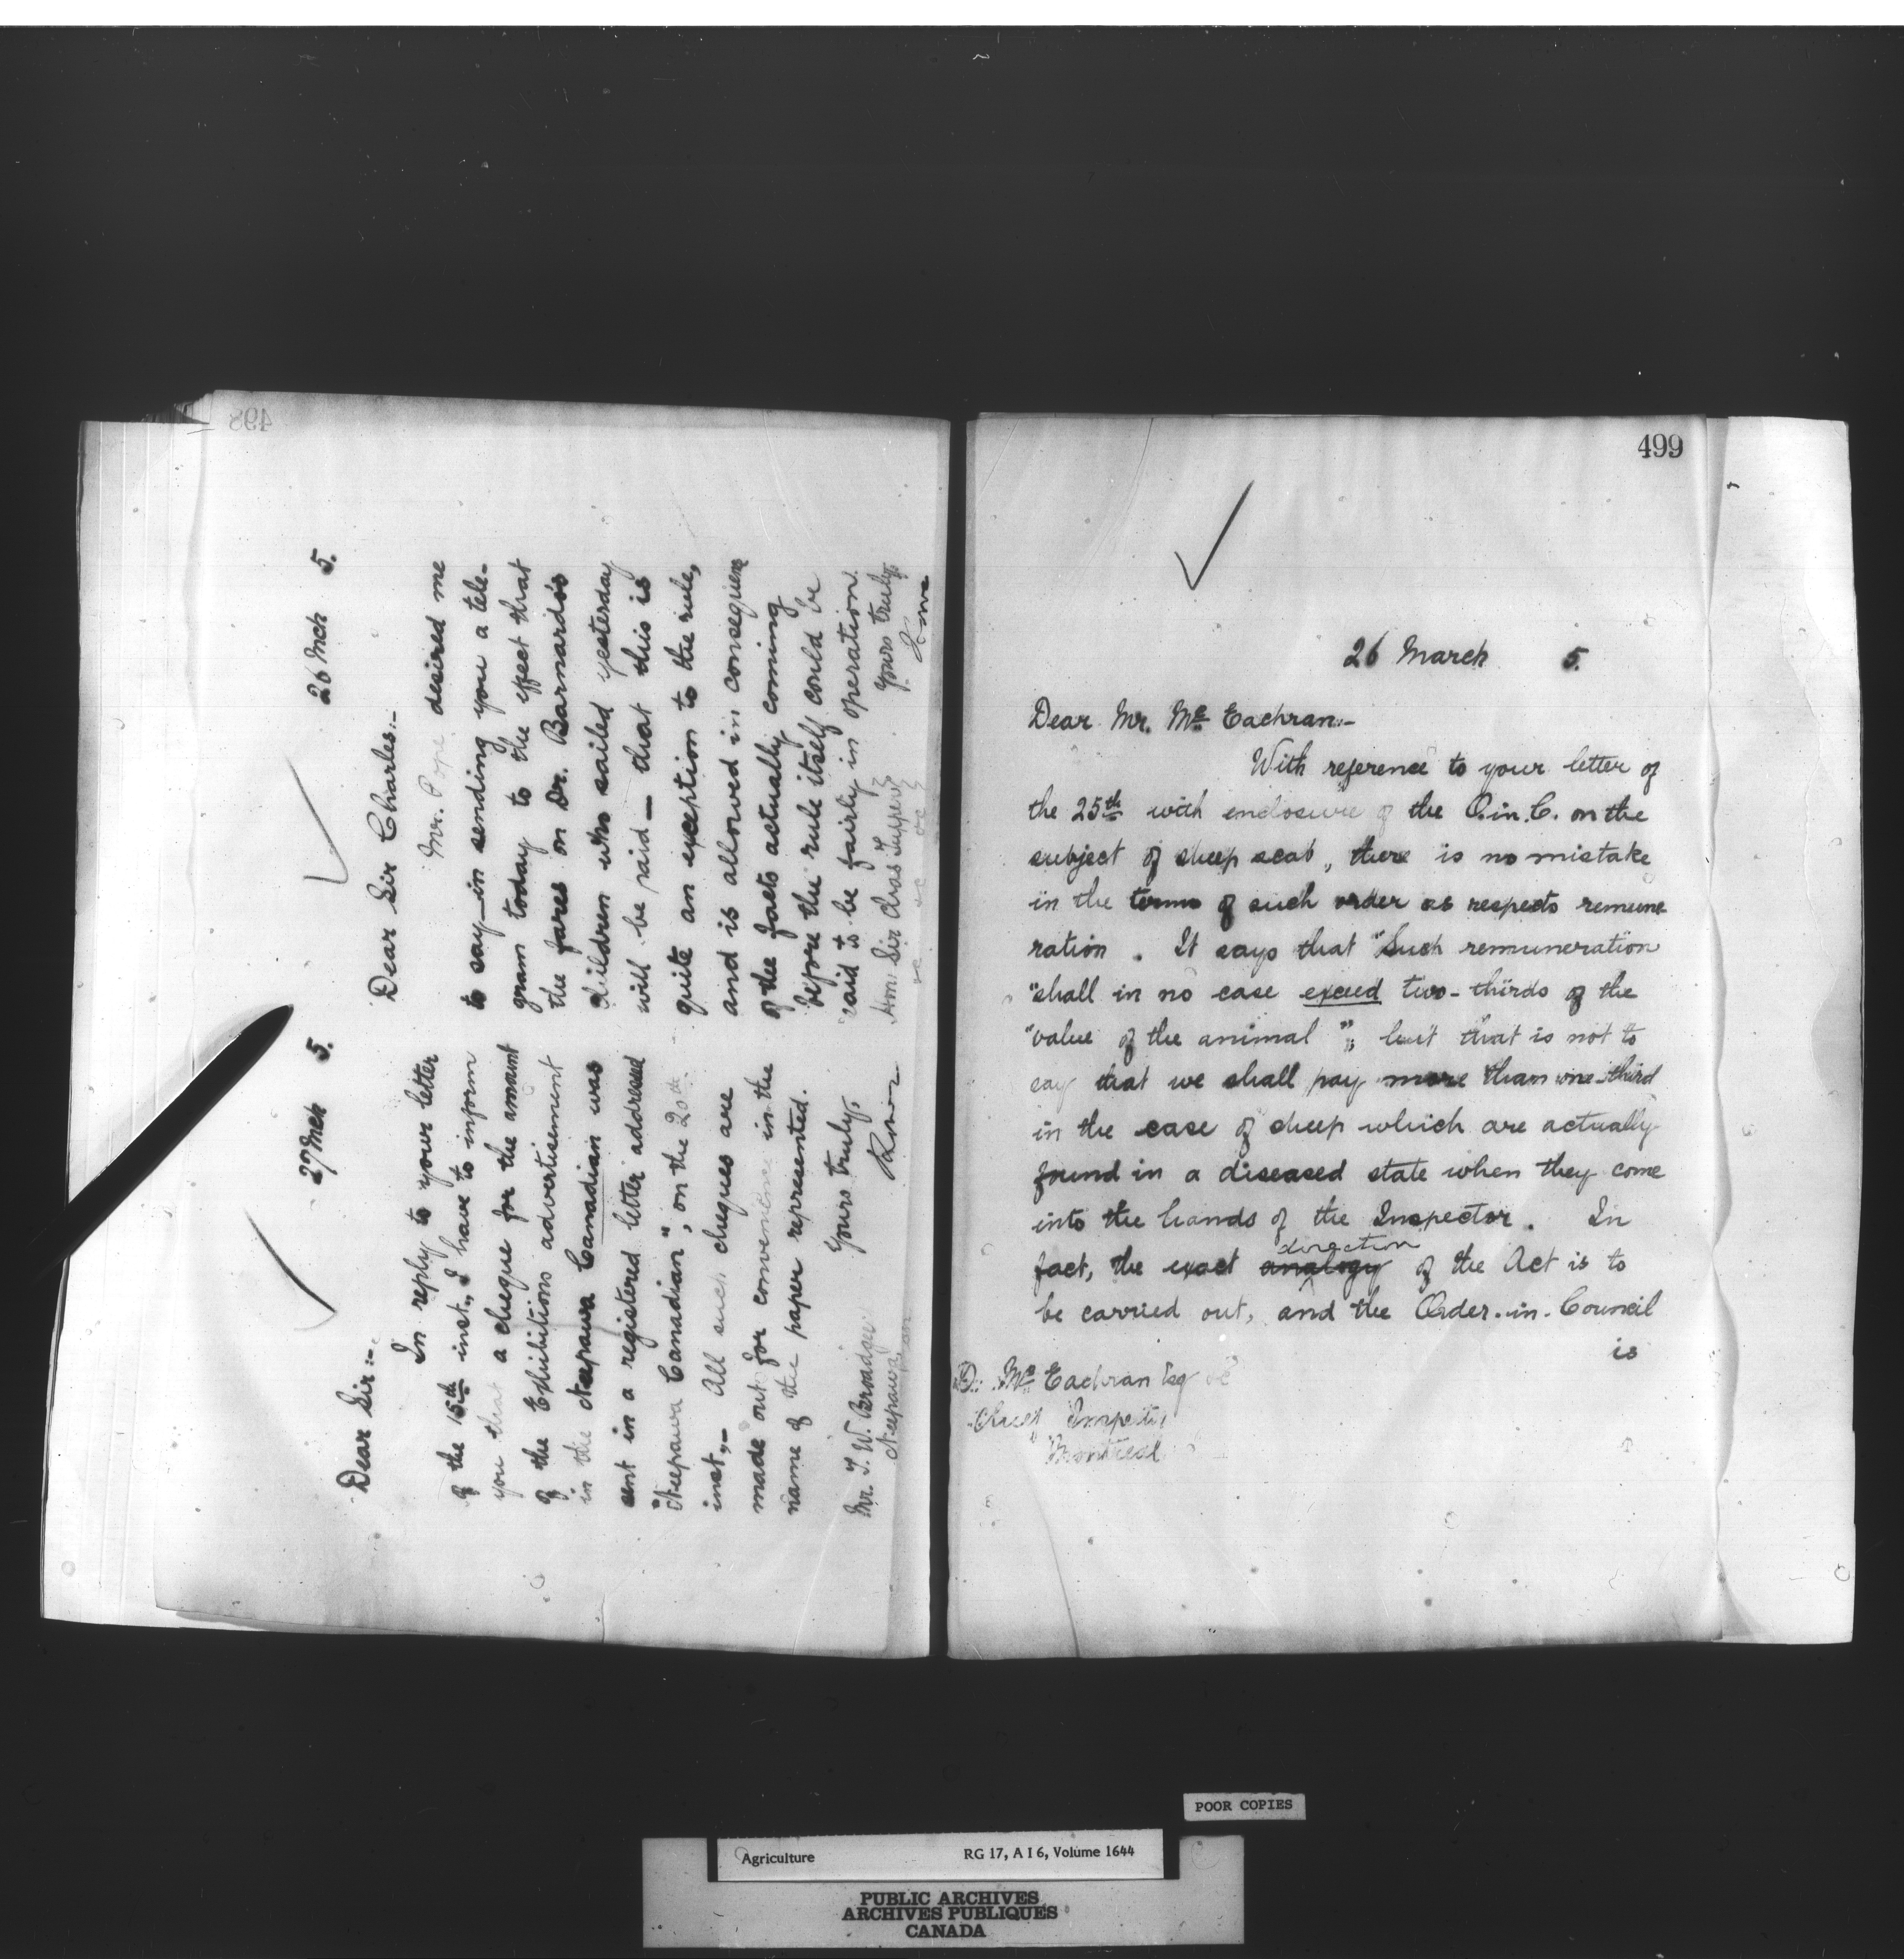 498
27 Mch 5.
Dear Sir:-
In reply to your letter
of the 15th inst., I have to inform
you that a cheque for the amount
of the Exhibitions advertisement
in the Neepawa Canadian was
sent in a registered letter addressed
"Neepawa Canadian", on the 20th
inst,- All such cheques are
made out for convenience in the
name of the paper represented.
Yours truly,
Mr. T. W. Broadgey
Neepawa, Man
26 Mch 5.
Dear Sir Charles:-
Mr. Pope desired me
to say - in sending you a tele-
gram today to the effect that
the fares on Dr. Barnardo's
children who sailed yesterday
will be paid - that this is
quite an exception to the rule,
and is allowed in consequence
of the facts actually coming
before the rule itself could be
said to be fairly in operation.
Yours truly,
Hon: Sir Chas Tupper
499
26 March 5.
Dear Mr. Mc Eachran:-
With reference to your letter of
the 25th with enclosure of the O.in.C. on the
subject of sheep scab, there is no mistake
in the terms of such order as respects remune
ration. It says that "Such remuneration
"shall in no case exceed two-thirds of the
"value of the animal"; but that is not to
say that we shall pay more than one-third
in the case of sheep which are actually
found in a diseased state when they come
into the hands of the Inspector. In
direction
fact, the exact analogy of the Act is to
be carried out, and the Order-in-Council
is
D. Mc Eachran Esq
Chief Inspector
Montreal
POOR COPIES
Agriculture RG 17, A I 6, Volume 1644
PUBLIC ARCHIVES
ARCHIVES PUBLIQUES
CANADA